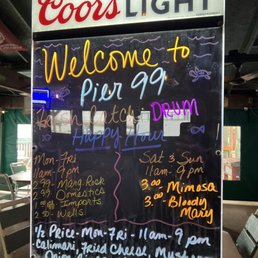 Coors LIGHT
Welcome to
Pier 99
Fresh Catch: DRUM
Happy Hour
Mon-Fri
11am-9pm
2.99- Marg. Rock
2.99- Domestics
Imports
2.50- Wells
Sat & Sun
11am-9pm
3.00 Mimosa
3.00 Bloody
Mary
1/2 Price- Mon-Fri- 11am-9pm
Calimari, Fried Cheese,